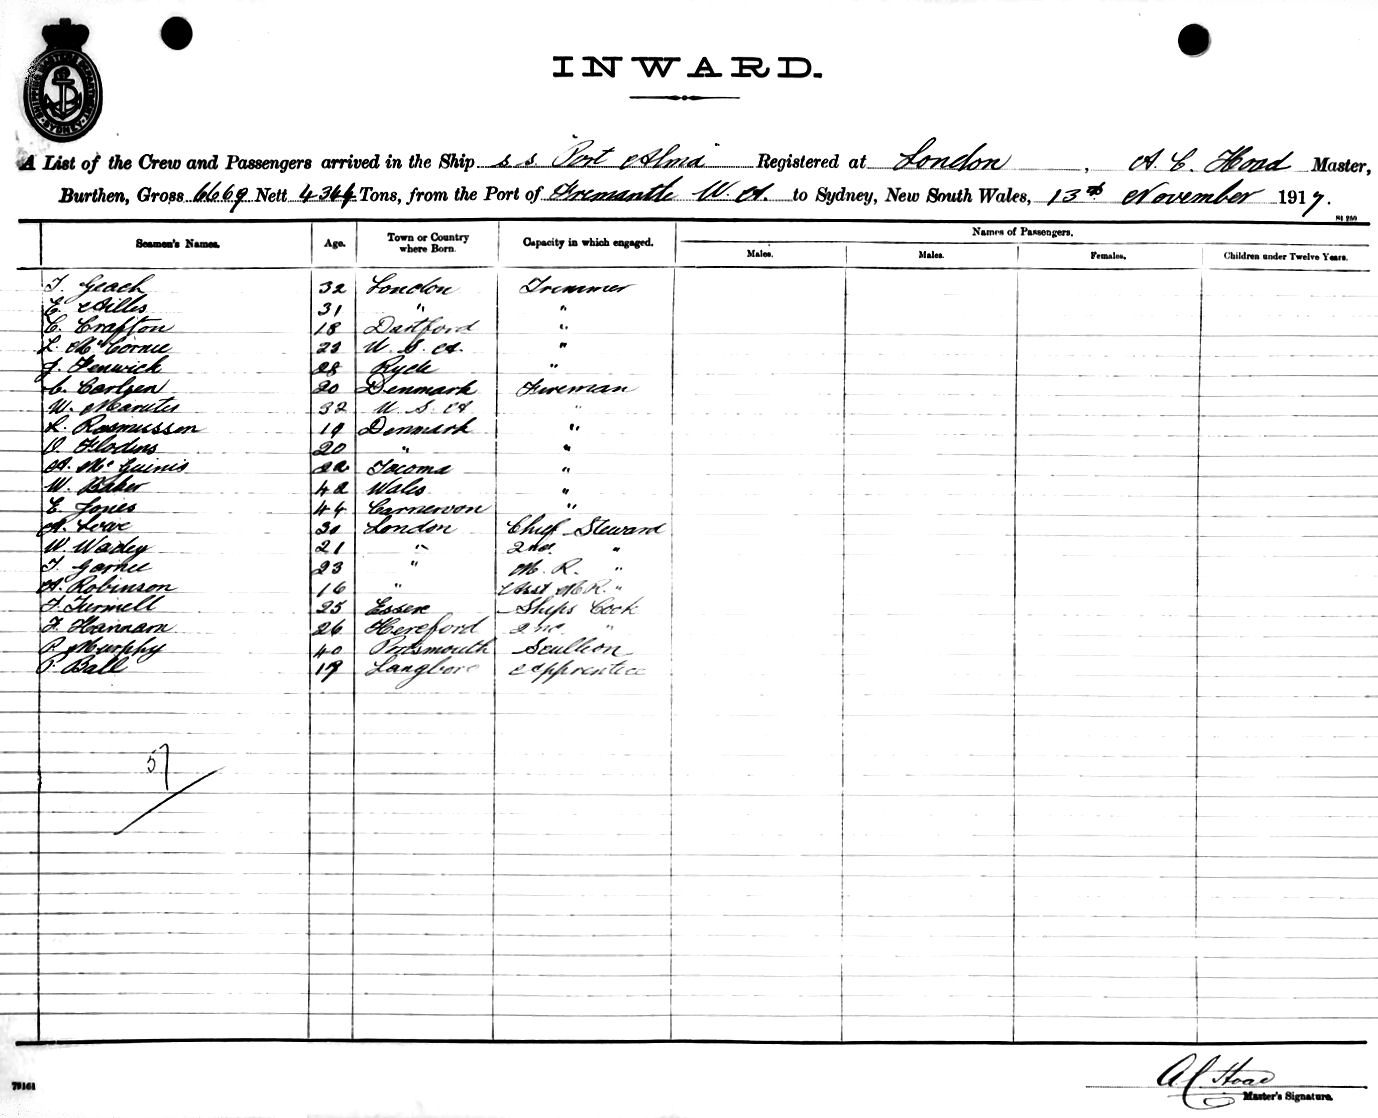 INWARD.
A List of the Crew and Passengers arrived in the Ship s s "Port Alma" Registered at London, A. C. Hoad Master,
Burthen, Gross 6669 Nett 4364 Tons, from the Port of Fremantle W. A. to Sydney, New South Wales, 13th November 1917.
Seamen's Names. Age. Town or Country where Born. Capacity in which engaged. Names of Passengers.
Males. Males. Females. Children under Twelve Years.
T. Geach 32 London Trimmer
E. 31 " "
C. Crafton 18 Dartford "
L. McCornie 23 U. S. A. "
J. Fenwick 28 Ryde "
C. Carlsen 20 Denmark Fireman
W. 32 U. S. A "
L. Rasmussen 19 Denmark "
O. Flodins 20 " "
A. McGuinis 22 Tacoma "
W. Baker 42 Wales "
E. Jones 44 Carnervon "
A. Lowe 30 London Chief Steward
W. Wadey 21 " 2nd "
T. 23 " M. R. "
A. Robinson 16 " Asst M.R. "
F. Turmell 25 Essex Ships Cook
F. Hannam 26 Hereford 2nd "
P. Murphy 40 Portsmouth Scullion
P. Ball 19 Apprentice
57
A C Hoad
Master's Signature.
79161